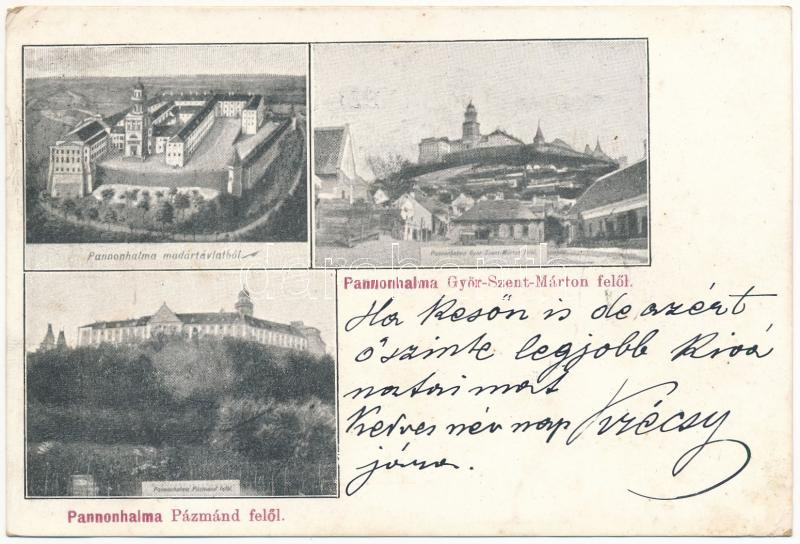 Pannonhalma madártávlatból
Pannonhalma Győr-Szent-Márton felől.
Pannonhalma Győr-Szent-Márton felől.
Ha későn is de azért
őszinte legjobb kivá
nataimat
Kedves név nap
jára.
Vécsy
Pannonhalma Pázmánd felől.
Pannonhalma Pázmánd felől.